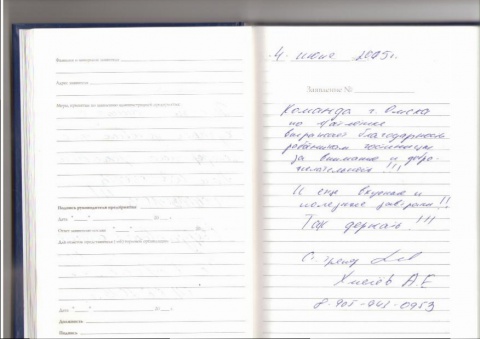 Фамилия и инициалы заявителя
Адрес заявителя
Меры, принятые по заявлению администрацией предприятия:
Подпись руководителя предприятия
Дата " " 20 г.
Ответ заявителю послан " " 20 г.
Для отметок представителя
Дата " " 20 г.
Должность
Подпись
4 июня 2005 г.
Заявление №
Команда г. Омска
по
выражает благодарность
работникам гостиницы
за внимание и добро-
желательность !!!
И еще вкусные и
полезные завтраки !!
Так держать !!!
С
А Е
8-905-943-0953